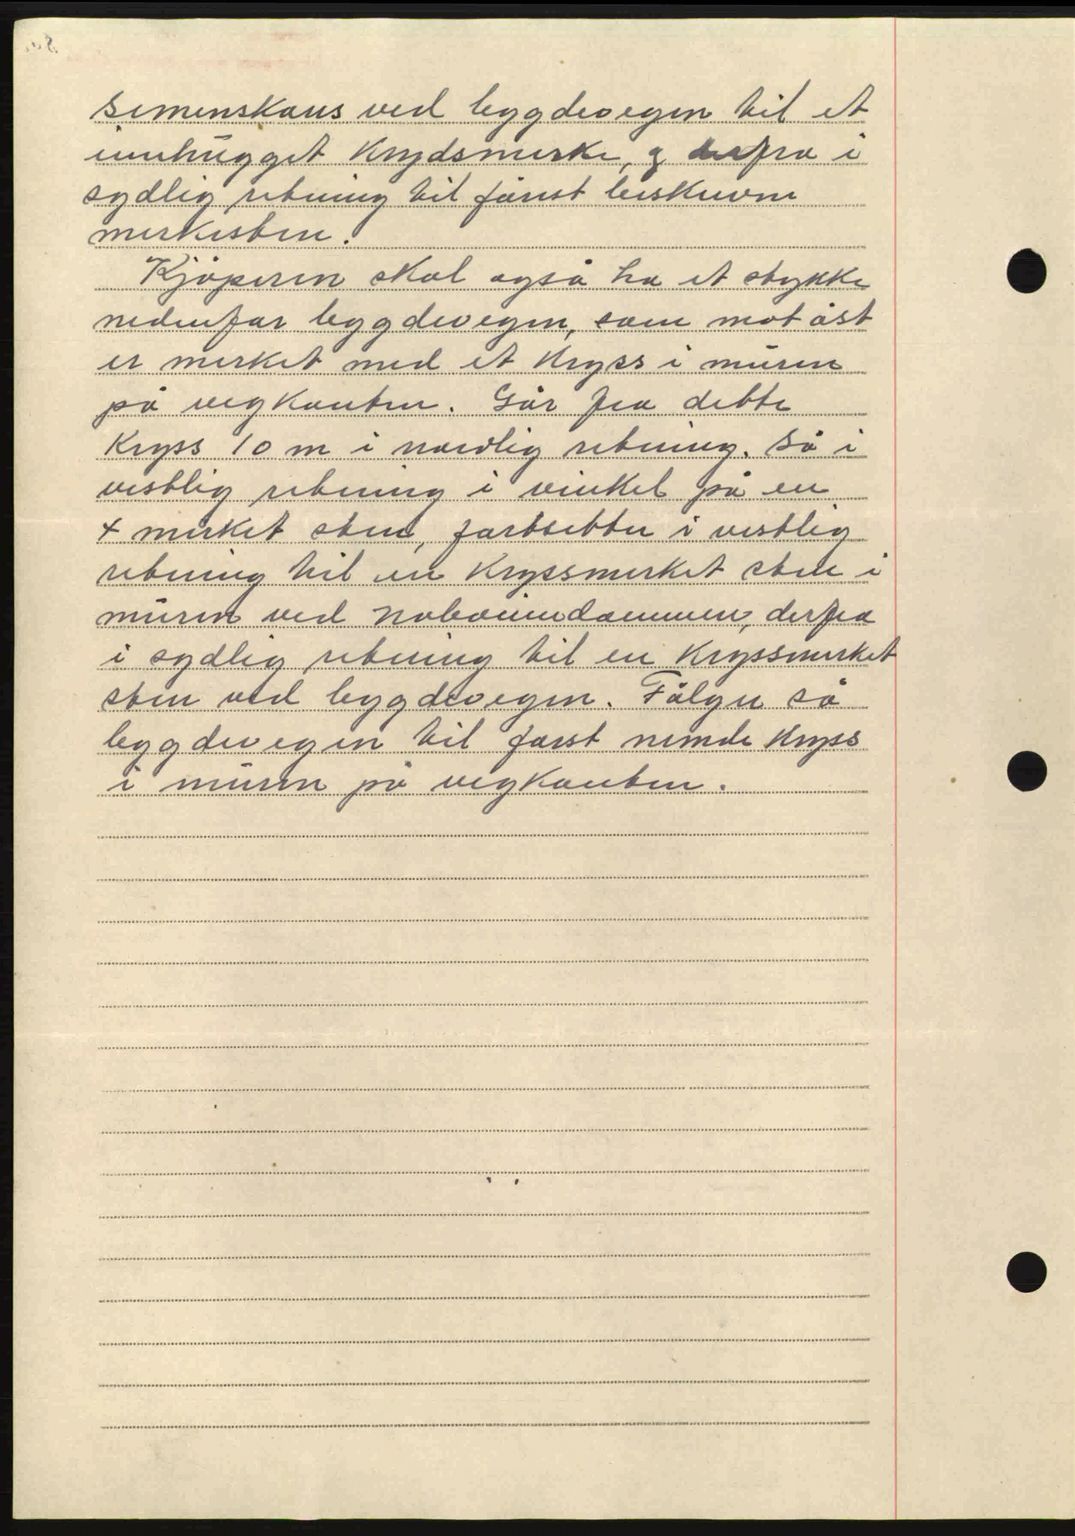 Simenskans ved bygdevegen til et
innhugget Krydsmerke, og derfra i
sydlig retning til først beskrevne
merkesten.
Kjøperen skal også ha et stykke
nedenfor bygdevegen, som mot øst
er merket med et Kryss i muren
på vegkanten. Går fra dette
Kryss 10 m i nordlig retning. Så i
vestlig retning i vinkel på en
+ merket sten, fortsetter i vestlig
retning til en Kryssmerket sten i
muren ved naboeiendommen, derfra
i sydlig retning til en Kryssmerket
sten ved bygdevegen. Følger så
bygdevegen til først nevnde Kryss
i muren på vegkanten.